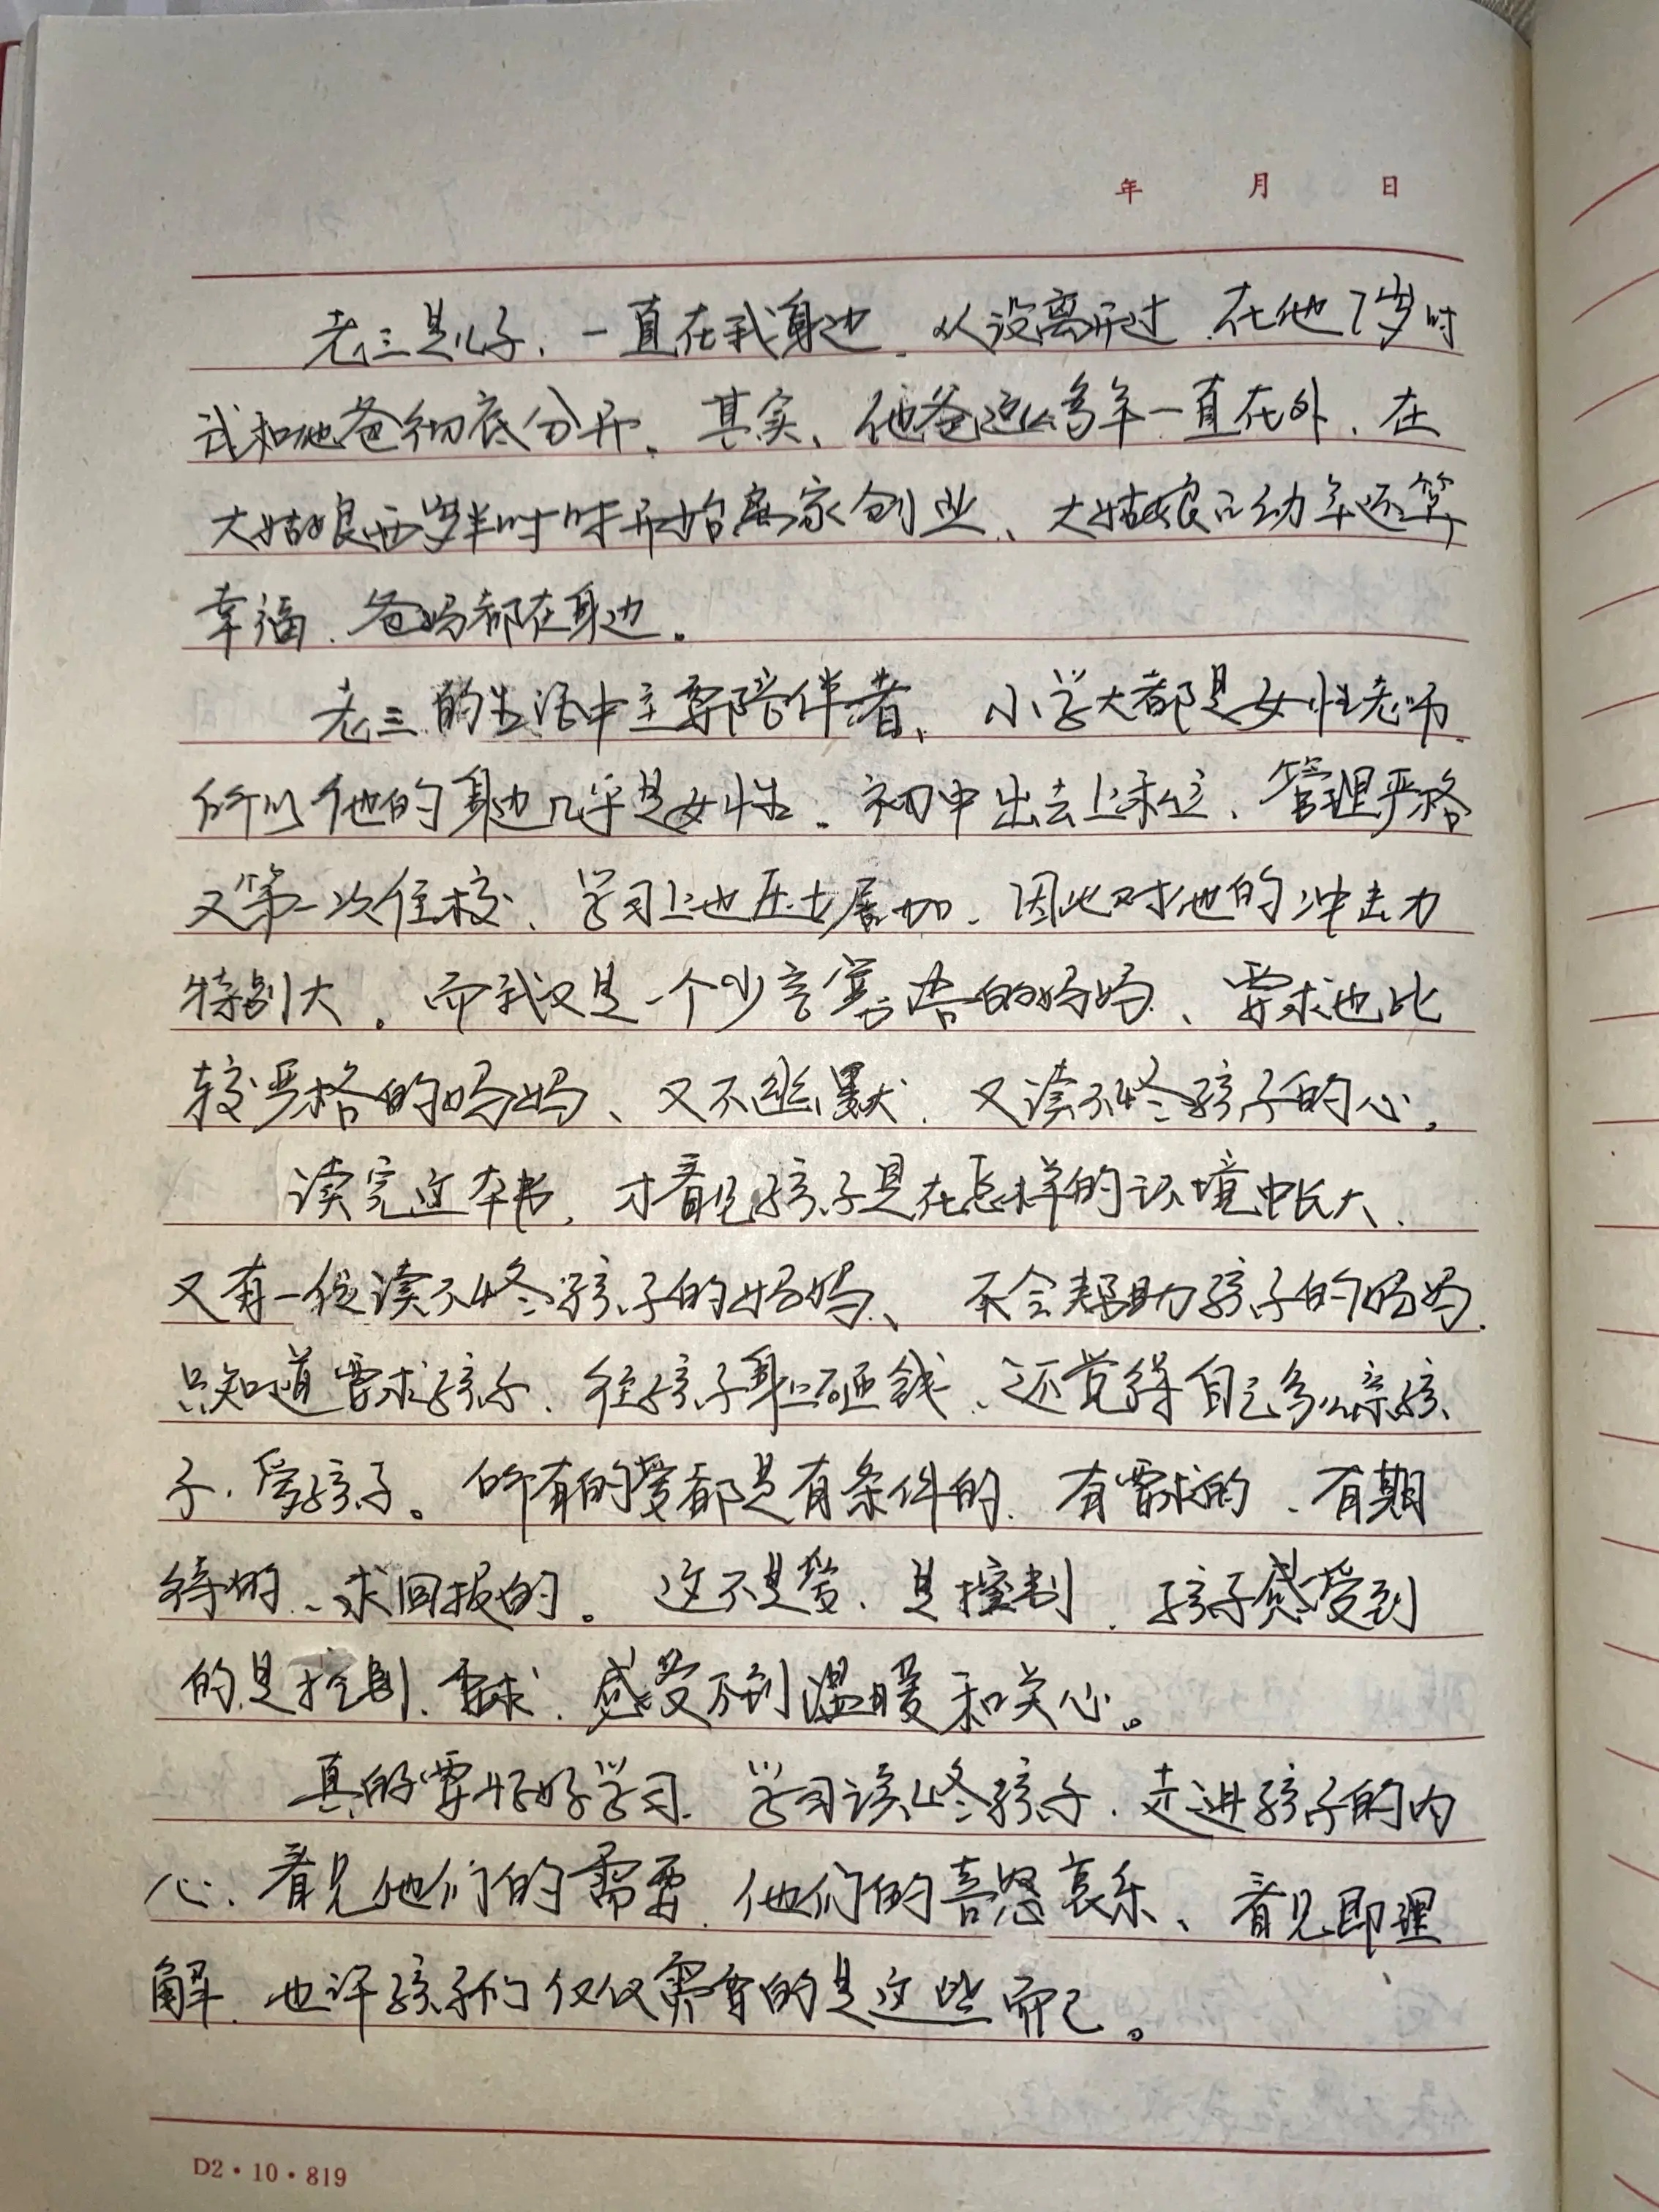 年 月 日
老三是儿子、一直在我身边、从没离开过、在他7岁时
我和他爸彻底分开。其实、他爸这么多年一直在外、在
大姑娘两岁半时时开始离家创业、大姑娘的幼年还算
幸福、爸妈都在身边。
老三的生活中主要陪伴者、小学大都是女性老师、
所以他的身边几乎是女性。初中出去上私立、管理严格
又第一次住校、学习上也压力增加、因此对他的冲击力
特别大。而我又是一个少言寡语的妈妈、要求也比
较严格的妈妈、又不幽默、又读不懂孩子的心。
读完这本书、才看见孩子是在怎样的环境中长大、
又有一位读不懂孩子的妈妈、不会帮助孩子的妈妈、
只知道要求孩子、往孩子身上砸钱、还觉得自己多么亲孩
子、爱孩子。所有的爱都是有条件的、有要求的、有期
待的、求回报的。这不是爱、是控制、孩子感受到
的是控制、要求、感受不到温暖和关心。
真的要好好学习、学习读懂孩子、走进孩子的内
心、看见他们的需要、他们的喜怒哀乐、看见即理
解、也许孩子们仅仅需要的是这些而已。
D2·10·819